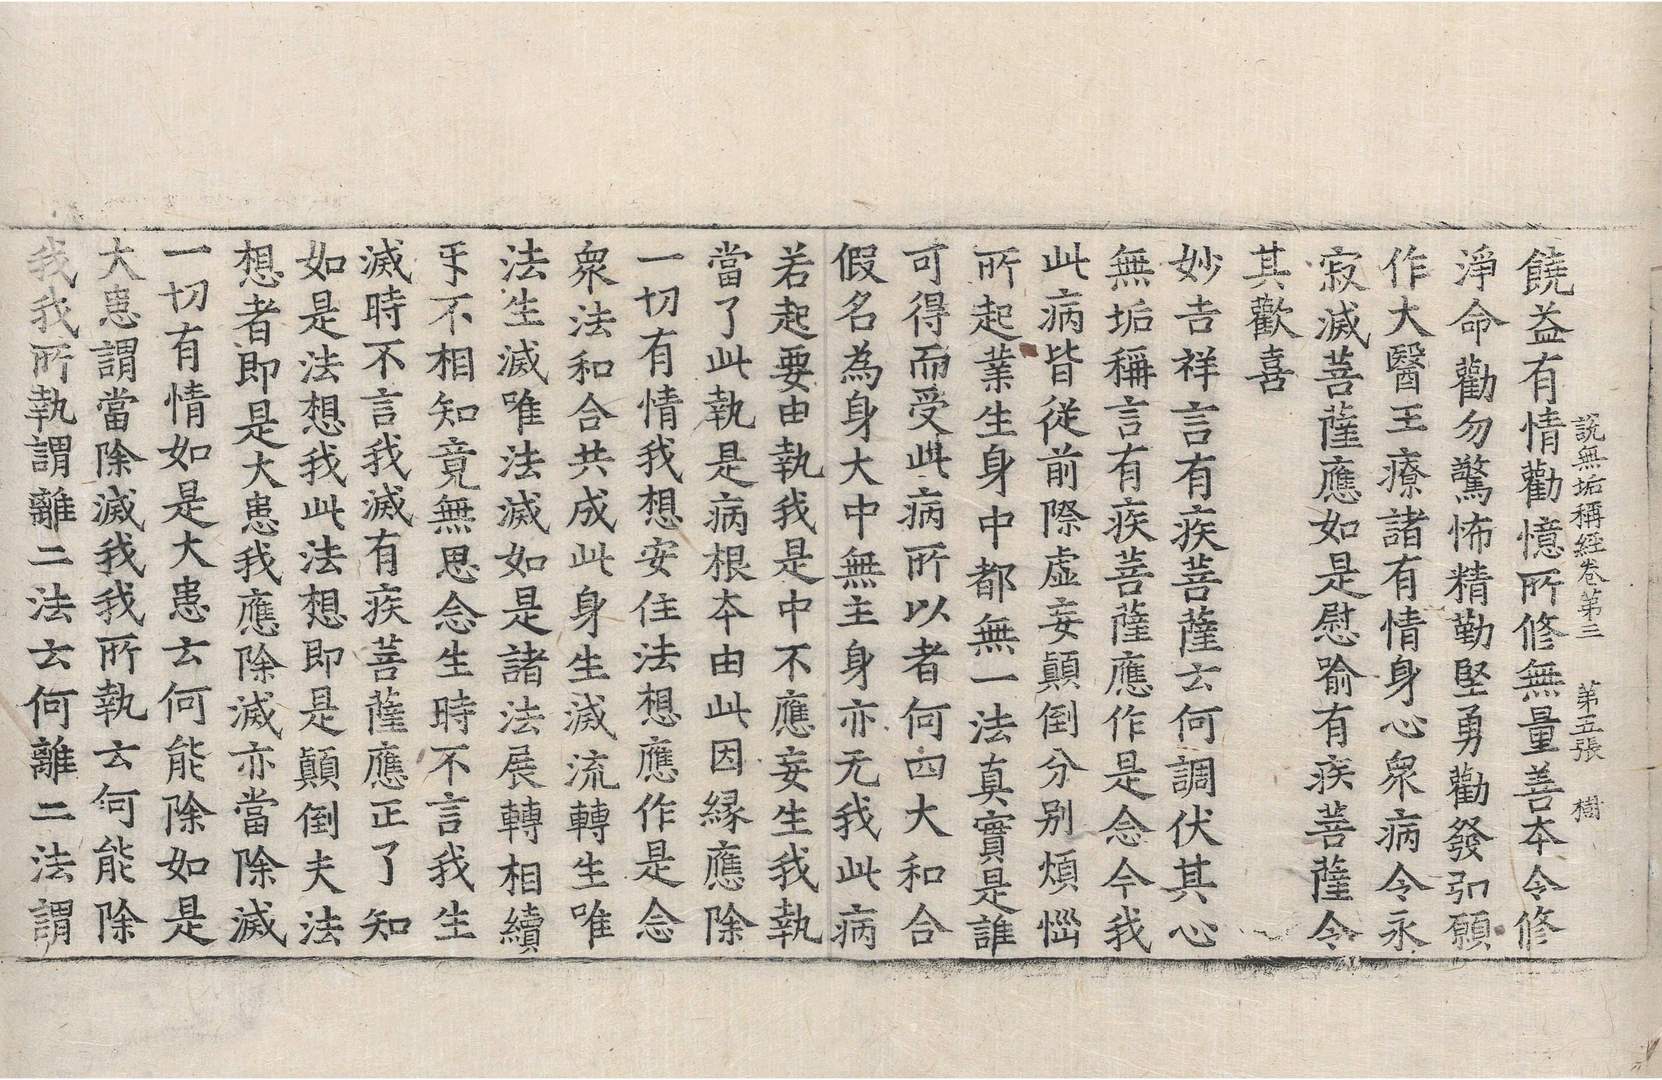 說無垢稱經卷第三 第五張 樹
饒益有情勸憶所修無量善本令修
淨命勸勿驚怖精勤堅勇勸發弘願
作大醫王療諸有情身心衆病令永
寂滅菩薩應如是慰喻有疾菩薩令
其歡喜
妙吉祥言有疾菩薩云何調伏其心
無垢稱言有疾菩薩應作是念今我
此病皆從前際虛妄顚倒分別煩惱
所起業生身中都無一法真實是誰
可得而受此病所以者何四大和合
假名為身大中無主身亦无我此病
若起要由執我是中不應妄生我執
當了此執是病根本由此因緣應除
一切有情我想安住法想應作是念
衆法和合共成此身生滅流轉生唯
法生滅唯法滅如是諸法展轉相續
㸦不相知竟無思念生時不言我生
滅時不言我滅有疾菩薩應正了知
如是法想我此法想即是顛倒夫法
想者即是大患我應除滅亦當除滅
一切有情如是大患云何能除如是
大患謂當除滅我我所執云何能除
我我所執謂離二法云何離二法謂